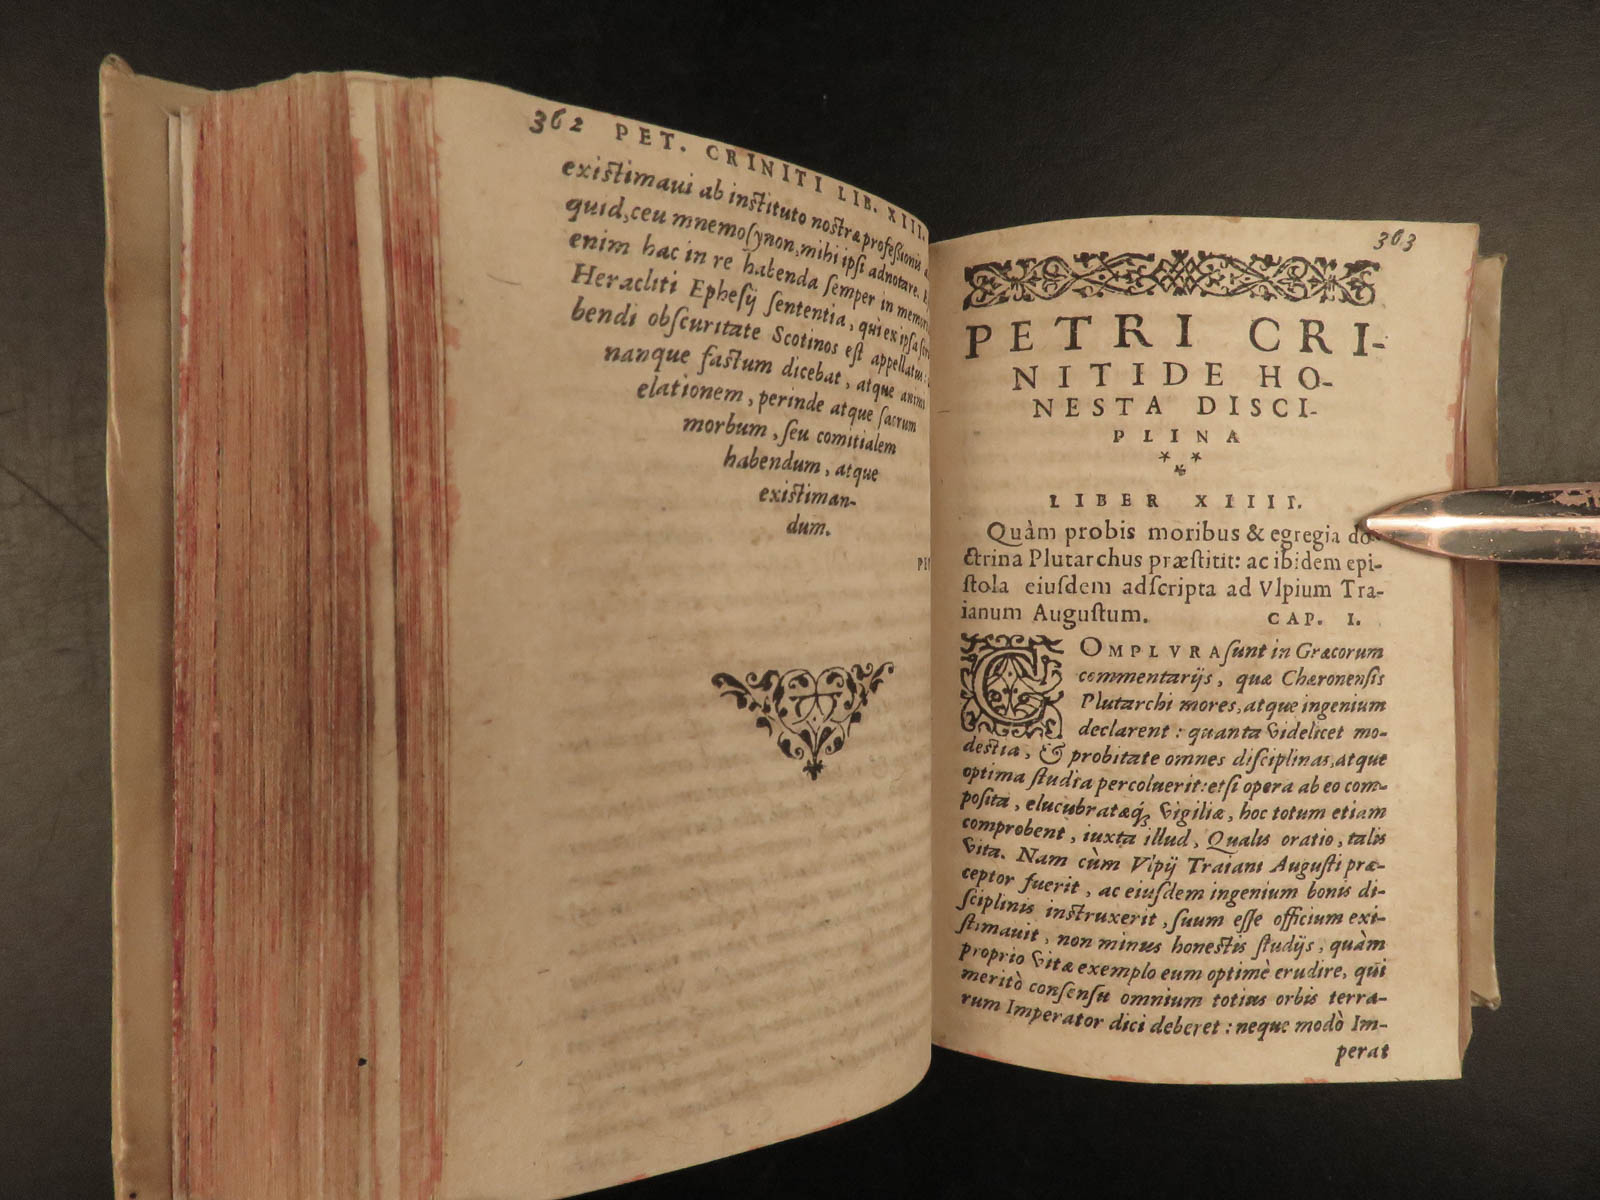 362 PET. CRINITI LIB. XIII.
exiſtimaui ab inſtituto noſtræ profeſſionis
quid, ceu mnemoſynon, mihi ipſi adnotare.
enim hac in re habenda ſemper in
Heracliti Epheſij ſententia, qui ex ipſa
bendi obſcuritate Scotinos eſt appellatus:
nanque faſtum dicebat, atque animi
elationem, perinde atque ſacrum
morbum, ſeu comitialem
habendum, atque
exiſtiman-
dum.
363
PETRI CRI-
NITI DE HO-
NESTA DISCI-
PLINA
* *
*
LIBER XIIII.
Quàm probis moribus & egregia do-
ctrina Plutarchus præſtitit: ac ibidem epi-
ſtola eiuſdem adſcripta ad Vlpium Tra-
ianum Auguſtum. CAP. I.
COMPLVRA ſunt in Græcorum
commentarijs, quæ Chæronenſis
Plutarchi mores, atque ingenium
declarent: quanta videlicet mo-
deſtia, & probitate omnes diſciplinas, atque
optima ſtudia percoluerit: etſi opera ab eo com-
poſita, elucubratæq́; vigiliæ, hoc totum etiam
comprobent, iuxta illud, Qualis oratio, talis
vita. Nam cùm Vlpij Traiani Auguſti præ-
ceptor fuerit, ac eiuſdem ingenium bonis di-
ſciplinis inſtruxerit, ſuum eſſe officium exi-
ſtimauit, non minus honeſtis ſtudijs, quàm
proprio vitæ exemplo eum optimè erudire, qui
meritò conſenſu omnium totius orbis terra-
rum Imperator dici deberet: neque modò Im-
perat